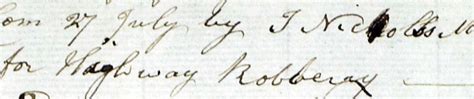 Com 27 July by J Nicholls M
for Highway Robberay